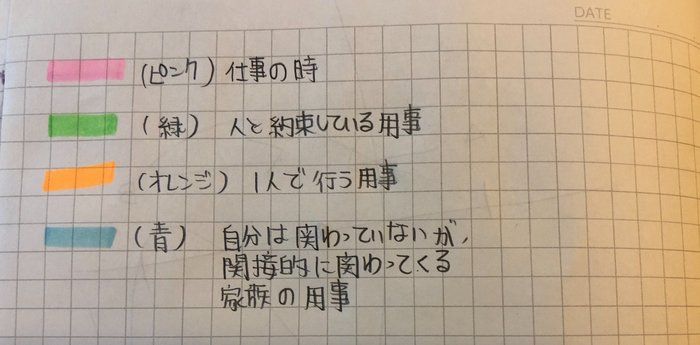 DATE
(ピンク) 仕事の時
(緑) 人と約束している用事
(オレンジ) 1人で行う用事
(青) 自分は関わっていないが、
間接的に関わってくる
家族の用事